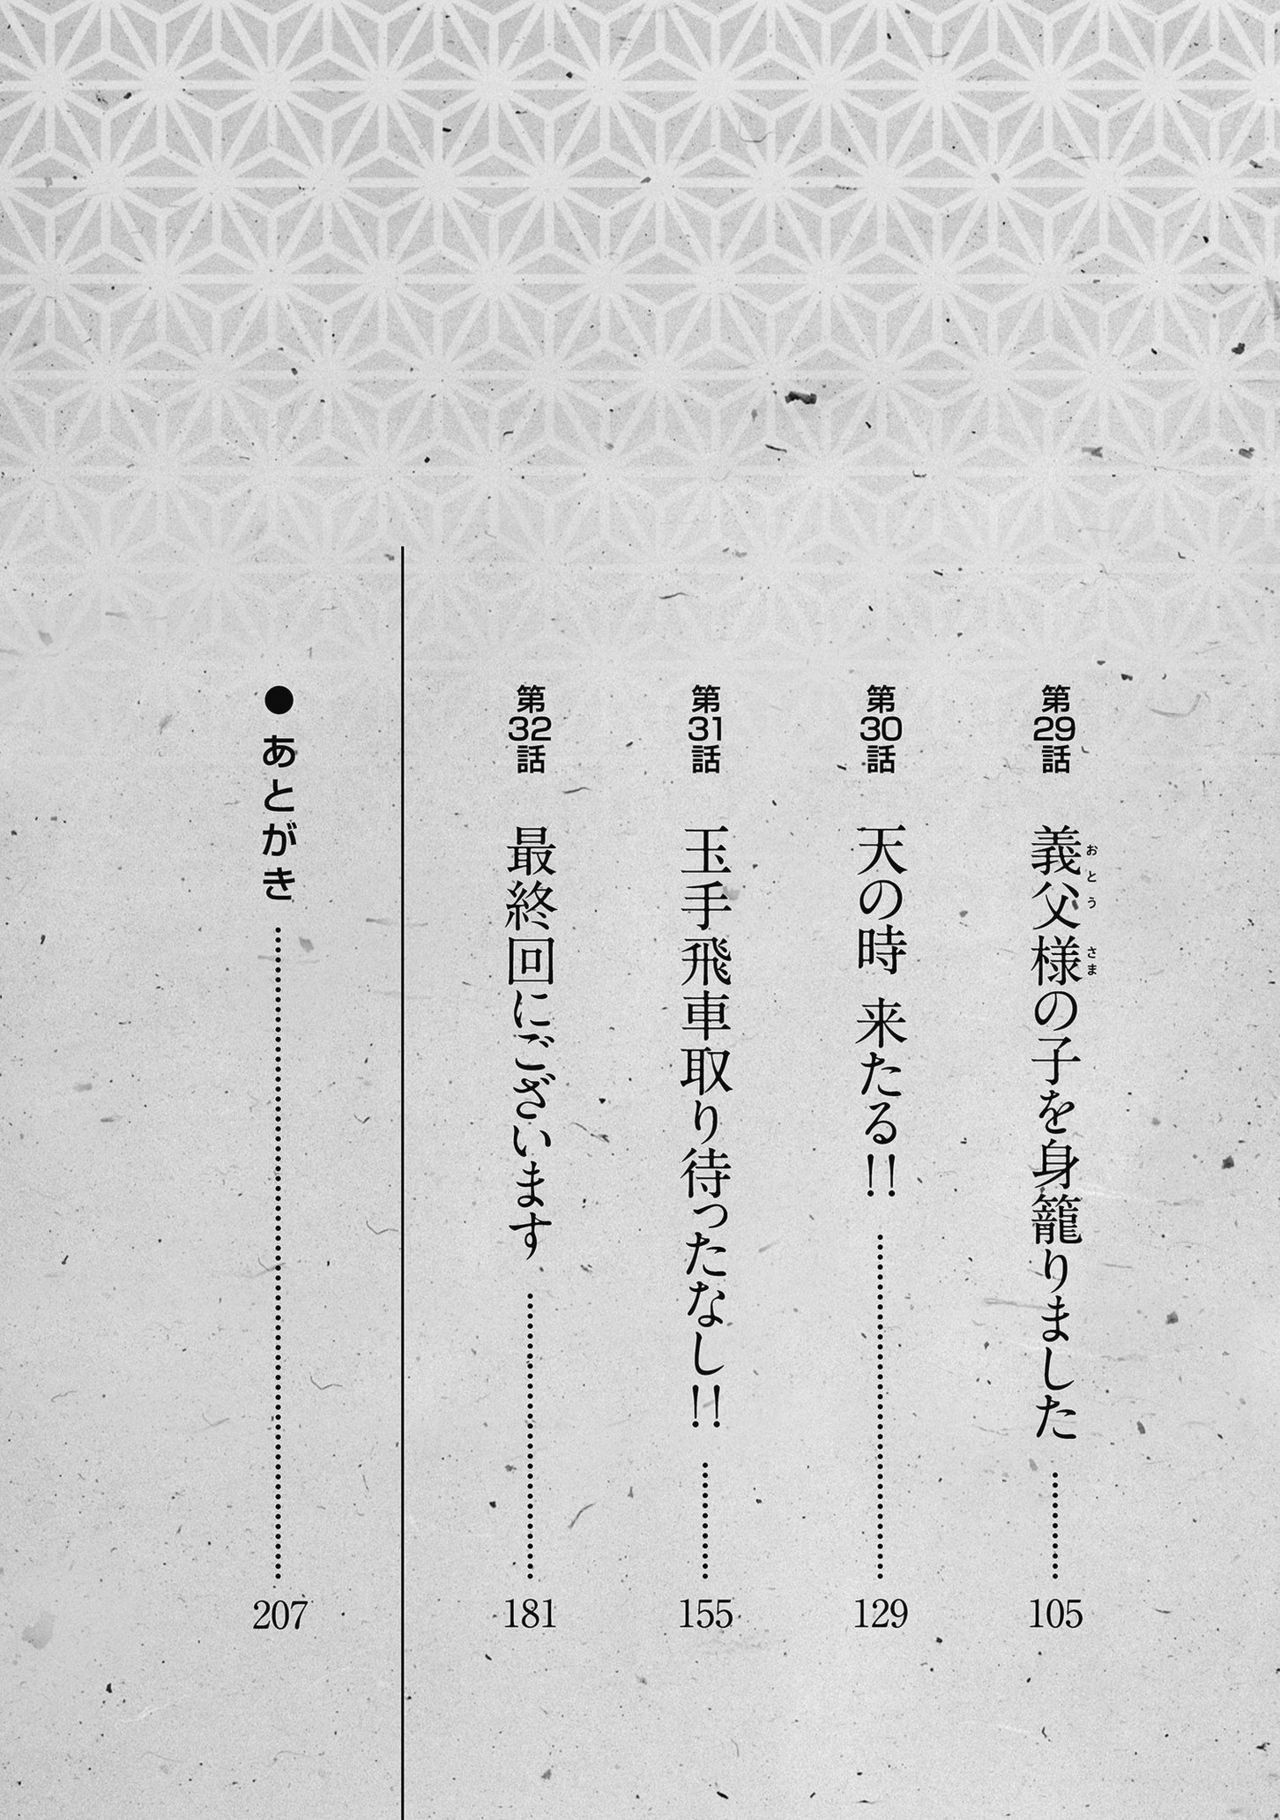 第29話 義父様の子を身籠りました 105
おとうさま
第30話 天の時 来たる!! 129
第31話 玉手飛車取り待ったなし!! 155
第32話 最終回にございます 181
●あとがき 207